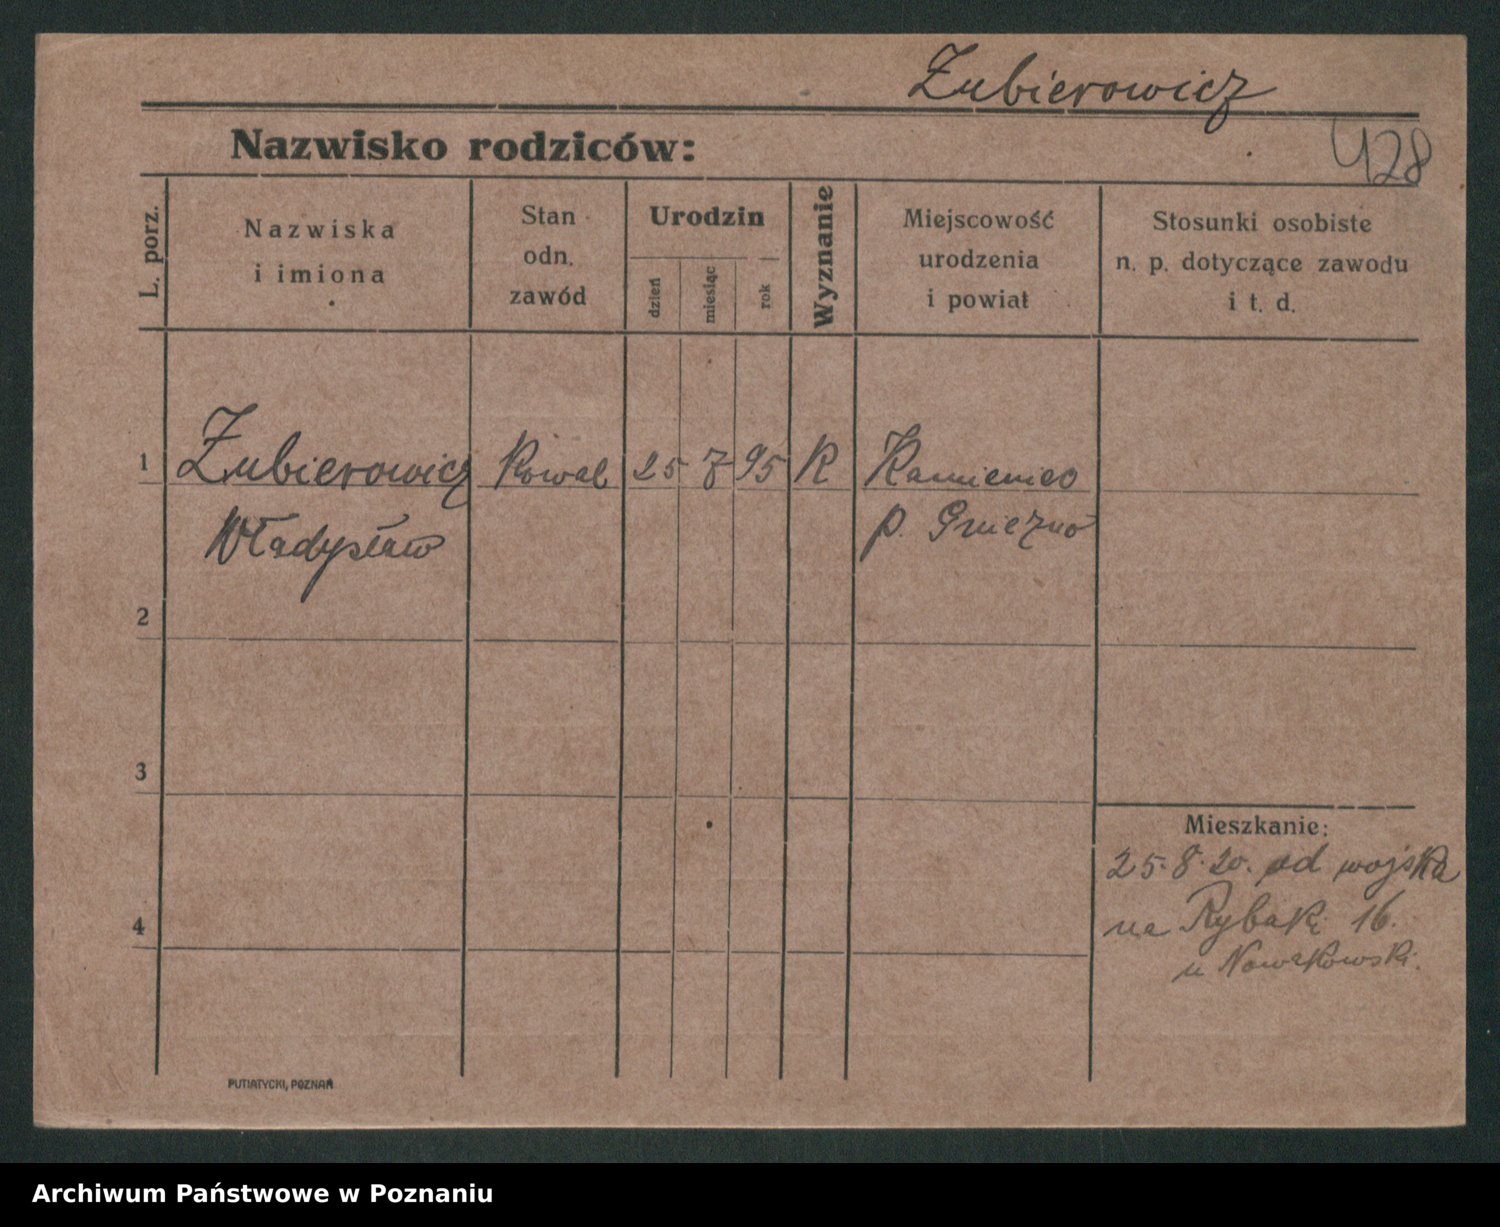 Żubierowicz
Nazwisko rodziców:
428
L. porz.
Nazwiska
i imiona
Stan
odn.
zawód
Urodzin
dzień
miesiąc
rok
Wyznanie
Miejscowość
urodzenia
i powiat
Stosunki osobiste
n. p. dotyczące zawodu
i t. d.
1 Żubierowicz Kowal 25 7 95 K Kamieniec
Władysław p. Gniezno
2
3
Mieszkanie:
25.8.20. od wojska
4
na Rybaki 16.
u Nowakowski.
PUTIATYCKI, POZNAŃ
Archiwum Państwowe w Poznaniu